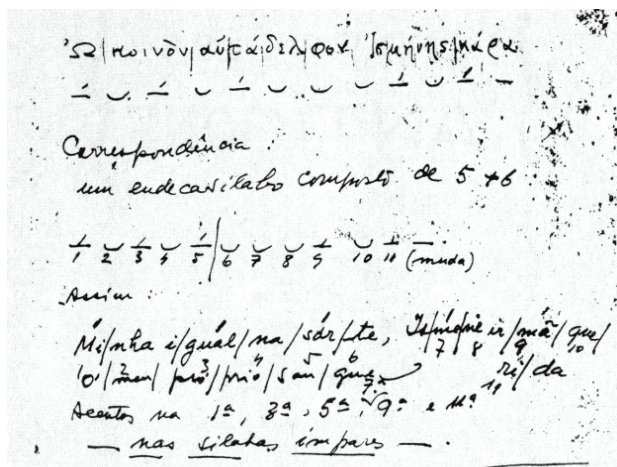 Ὦ|κοινὸν|αὐτάδελφον|Ἰσμήνης|κάρα
– ◡ – ◡ – ◡ ◡ ◡ – ◡ – –
Correspondência:
um endecasílabo composto de 5 + 6
1 2 3 4 5 | 6 7 8 9 10 11 (muda)
Assim:
Mi/nha i/guál/na/sór/te, Is/mé/ne ir/mã/que/
7 8 9 10
"ó/meu/pró/prio/san/gue ri/da
2 3 4 5 6 7 11
Acentos na 1ª, 3ª, 5ª, 9ª e 11ª
— nas sílabas ímpares — .